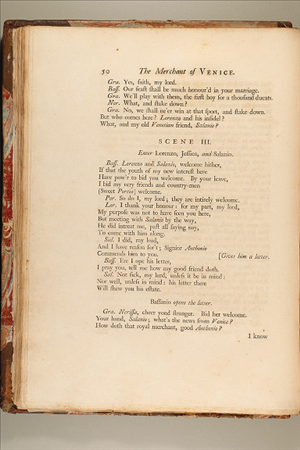 50 The Merchant of VENICE.
Gra. Yes, faith, my lord.
Bass. Our feast shall be much honour'd in your marriage.
Gra. We'll play with them, the first boy for a thousand ducats.
Ner. What, and stake down?
Gra. No, we shall ne'er win at that sport, and stake down.
But who comes here? Lorenzo and his infidel?
What, and my old Venetian friend, Solanio?
SCENE III.
Enter Lorenzo, Jessica, and Solanio.
Bass. Lorenzo and Solanio, welcome hither,
If that the youth of my new interest here
Have pow'r to bid you welcome. By your leave,
I bid my very friends and country-men
(Sweet Portia) welcome.
Por. So do I, my lord; they are intirely welcome.
Lor. I thank your honour: for my part, my lord,
My purpose was not to have seen you here,
But meeting with Solanio by the way,
He did intreat me, past all saying nay,
To come with him along.
Sol. I did, my lord,
And I have reason for't; Signior Anthonio
Commends him to you. [Gives him a letter.
Bass. Ere I ope his letter,
I pray you, tell me how my good friend doth.
Sol. Not sick, my lord, unless it be in mind:
Nor well, unless in mind: his letter there
Will shew you his estate.
Bassanio opens the letter.
Gra. Nerissa, cheer yond stranger. Bid her welcome.
Your hand, Solanio; what's the news from Venice?
How doth that royal merchant, good Anthonio?
I know